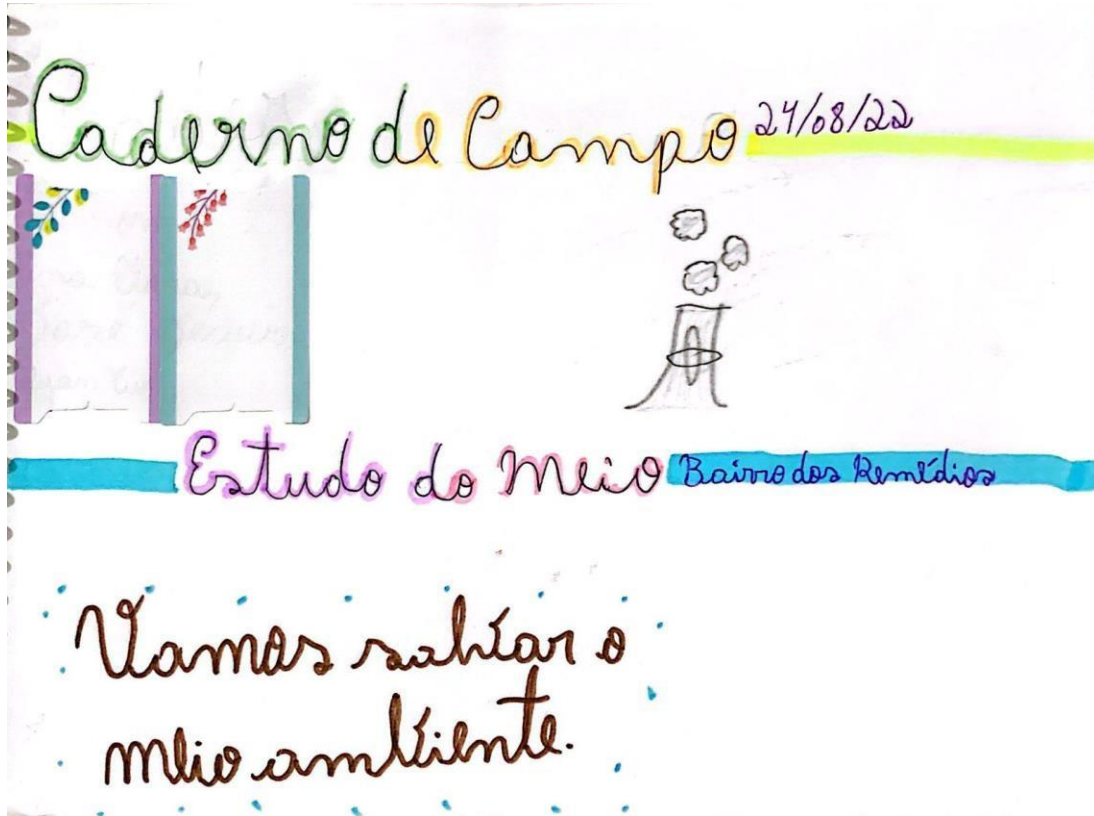 Caderno de Campo 24/08/22
Estudo do Meio Bairro dos Remédios
Vamos salvar o
meio ambiente.